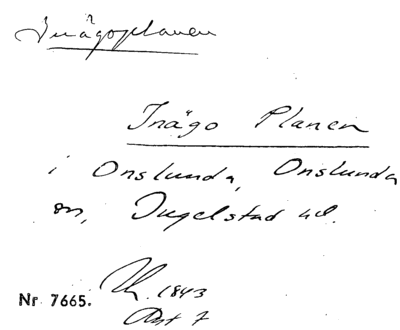 Inägoplanen
Inägo Planen
i Onslunda, Onslunda
sn, Ingelstad hd.
Nr 7665.
1843
Akt 7